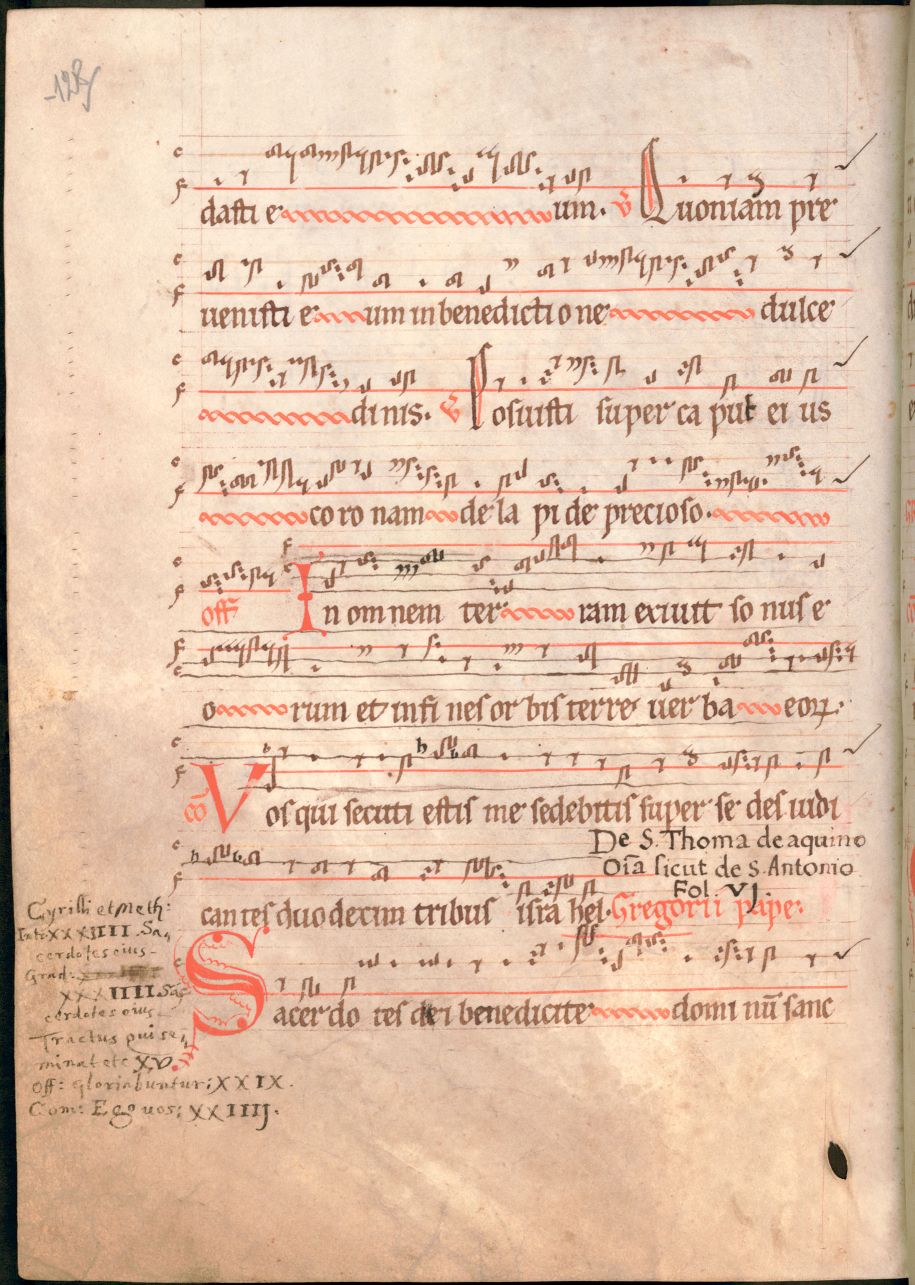 128
dasti e um. V Quoniam pre
uenisti e um in benedicti o ne dulce
di nis. V Posuisti super ca put ei us
co ro nam de la pi de precioso.
off In omnem ter ram exiuit so nus e
o rum et in fi nes or bis terre uer ba eoꝝ.
co Vos qui secuti estis me sedebitis super se des iudi
De S. Thoma de aquino
Oīa sicut de S. Antonio
Fol. VJ.
can tes duo decim tribus isra hel. Gregorii pape.
Sacerdo tes dei benedicite domi nū sanc
Cyrilli et Meth:
Int: XXXIIII Sa,
cerdotes eius
Grad:
XXXIIII Sac
erdotes eius
Tractus qui se,
minat etc XV.
Off: gloriabuntur; XXIX.
Com: Ego uos; XXIIIJ.